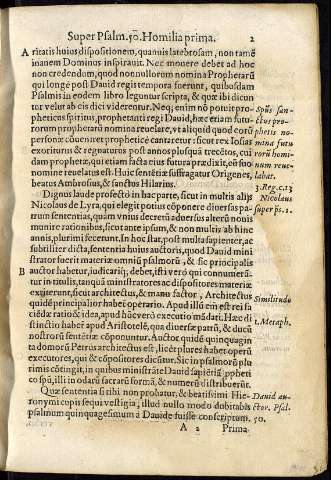 Super Psalm. 50. Homilia prima. 2
A ritatis huius dispositionem, quamuis latebrosam, non tamē
inanem Dominus inspirauit. Nec mouere debet ad hoc
non credendum, quod nonnullorum nomina Prophetarū
qui longè post Dauid regis tempora fuerunt, quibusdam
Psalmis in eodem libro leguntur scripta, & quæ ibi dicun
tor velut ab eis dici viderentur. Neq; enim nō potuit pro-
pheticus spiritus, prophetanti regi Dauid, hæc etiam futu
rorum prophetarū nomina reuelare, vt aliquid quod eorū
personæ cōueniret propheticè cantaretur: sicut rex Iosias
exoriturus & regnaturus post annos plusquā trecētos, cui
dam prophetæ, qui etiam facta eius futura prædixit, cū suo
nomine reuelatus est. Huic sentētiæ suffragatur Origenes,
beatus Ambrosius, & sanctus Hilarius.
Spūs san-
ctus pro-
phetis no-
mina futu
rorū homi-
num reue-
labat.
3. Reg. c. 13
Dignus laude profectò in hac parte, sicut in multis alijs
Nicolaus de Lyra, qui elegit potiùs cōponere diuersas pa-
trum sententias, quàm vnius decretū aduersus alterū noui:
munire rationibus, sicut ante ipsum, & non multis ab hinc
annis, plurimi fecerunt. In hoc stat, post multa sapienter, ac
subtiliter dicta, sententia huius auctoris, quod Dauid mini
strator fuerit materiæ omniū psalmorū, & sic principalis
B auctor habetur, iudicariq; debet, isti verò qui connumerā-
tur in titulis, tanquā ministratores ac dispositores materiæ
exigerunt, sicut architectus, & manu factor, Architectus
quidē principalior habet opus. Apud illū em̄ est rei fa
ciēdæ ratio & idea, apud hūc verò executio mādati. Hæc di
stinctio habeť apud Aristotelē, qua diuersæ patrū, & ducū
nostrorū sentētiæ cōponuntur. Auctor quidē quinquagin
ta domorū Petrus architectus est, licèt plures habet operū
executores, qui & cōpositores dicūtur. Sic in psalmorū plu
rimis cōtingit, in quibus ministrāte Dauid sapiētiā
corpū, illi in odarū sacrarū formā, & numerū distribuerūt.
Nicolaus
super ps. 1.
Similitudo
1. Metaph.
Quæ sententia si tibi non probatur, & beatissimi Hie-
ronymi copis sequi vestigia, illud nullo modo dubitabis
psalmum quinquagesimum à Dauide fuisse conscriptum.
Dauid au-
ctor. Psal.
50.
A 2 Prima.